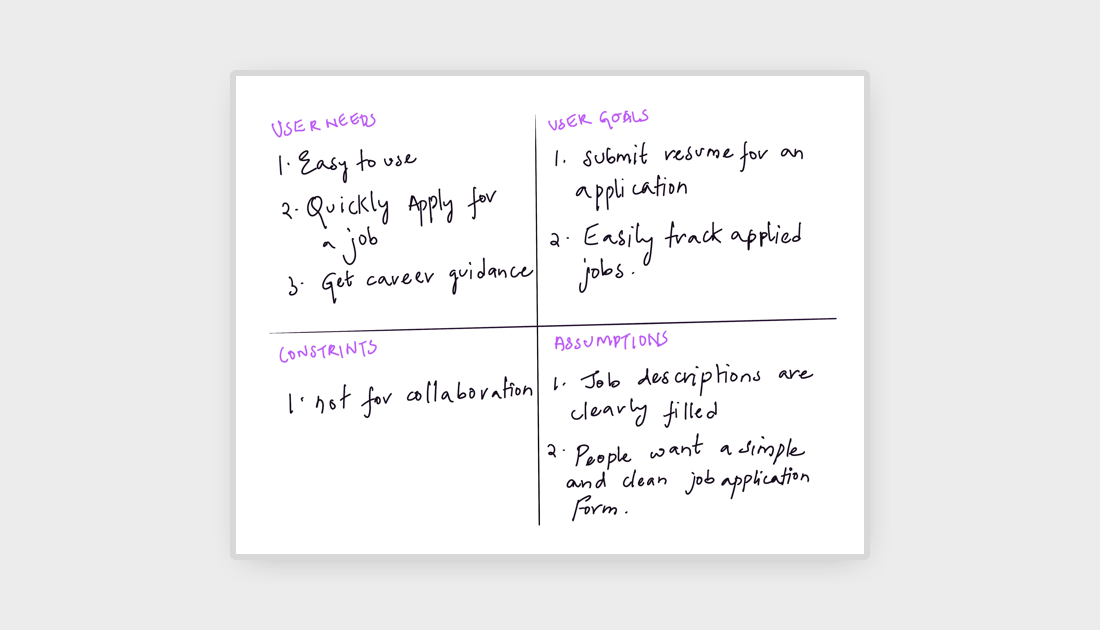 USER NEEDS
1. Easy to use
2. Quickly Apply for
a job
3. Get career guidance
USER GOALS
1. Submit resume for an
application
2. Easily track applied
jobs.
CONSTRINTS
1. not for collaboration
ASSUMPTIONS
1. Job descriptions are
clearly filled
2. People want a simple
and clean job application
Form.